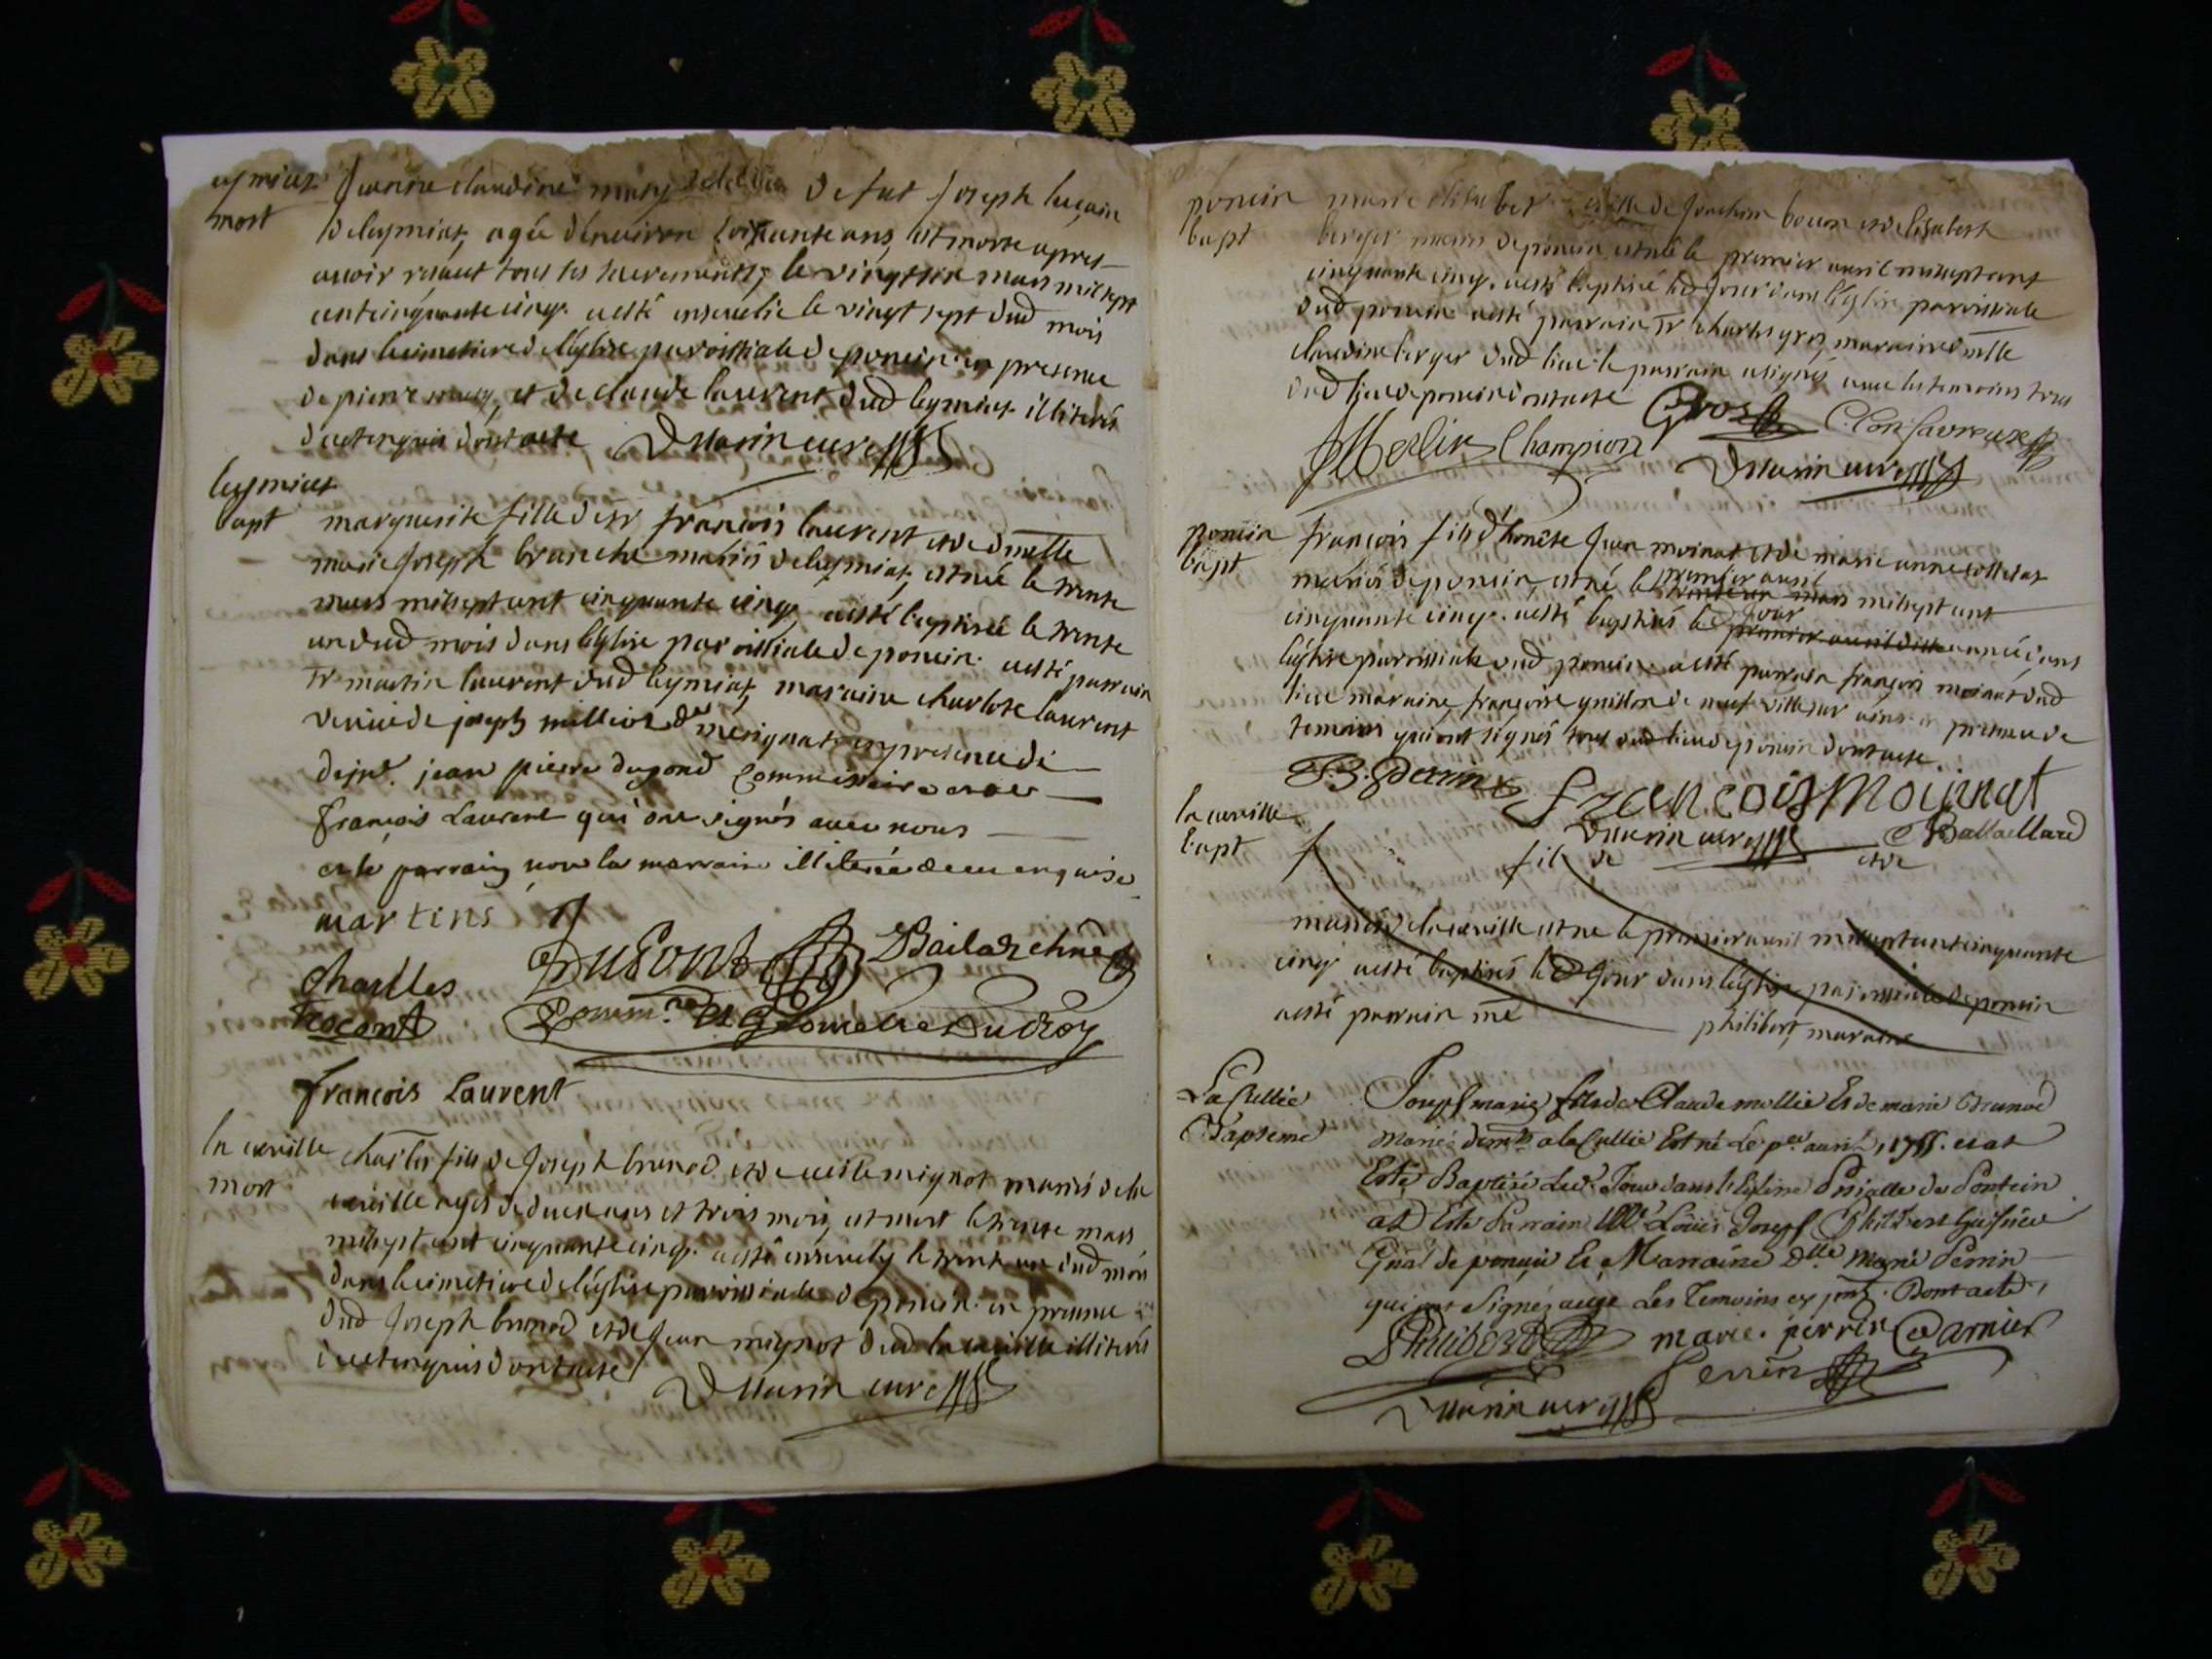 leymiat
mort
Jeanne claudine mary de fut Joseph lucain
de leymiat, agée d'environ soixante ans, est morte apres
avoir receut tous les sacrements, le vingt six mars mil sept
cent cinquante cinq. a esté ensevelie le vingt sept dud mois
dans le cimetiere de l'église paroissiale de poncin en presence
de pierre mary, et de claude laurent dud leymiat illiterés
de ce enquis dont acte DMarin curé
leymiat
bapt
marguerite fille de sr françois laurent et de dmelle
marie Joseph branche mariés de leymiat, est née le trente
mars mil sept cent cinquante cinq, a esté baptisée le trente
un dud mois dans l'église paroissiale de poncin. a esté parrain
sr martin laurent dud leymiat, maraine charlote laurent
veuve de joseph millior de merignat en presence de
jean pierre dupond Commissaire et de
françois Laurent qui ont signés avec nous
et le parrain non la marraine illiterée de ce enquise
martins
charlles
DuPont
Comm.re Et Geometre Du Roy
françois Laurent
la cueille
mort
charles fils de Joseph brunod et de cecile mignot mariés de la
cueille agés de deux ans et trois mois, est mort le trente mars
mil sept cent cinquante cinq. a esté ensevely le trente un dud mois
dans le cimetiere de l'église paroissiale de poncin. en presence
dud Joseph brunod et de Jean mignot dud la cueille illiterés
de ce enquis dont acte
DMarin curé
poncin
bapt
marie elisabet fille de Joachim bouun et d'elisabeth
berger mariés de poncin est née le premier avril mil sept cent
cinquante cinq. a esté baptisé led jour dans l'église paroissiale
dud poncin a esté parrain sr charles gros, maraine dmelle
claudine berger dud lieu le parrain a signés avec les temoins tous
dud lieu de poncin dont acte Gros
Merlin Champion
DMarin curé
poncin
bapt
françois fils d'honête Jean moinat et de marie anne colletat
mariés de poncin, est né le premier avril mil sept cent
cinquante cinq. a esté baptisés led jour année dans
l'église parrissiale dud poncin a esté parrain françois moinat dud
lieu maraine françoise guillon de neuf ville sur ains. en presence de
temoins qui ont signés tous dud lieu de poncin dont acte.
francois Moinnat
DMarin curé Battaillard
la cueille
bapt
fils de et de
mariés de la cueille est né le premier avril mil sept cent cinquante
cinq a esté baptisés led Jour dans l'église paroissiale de poncin
a esté parrain me philibert, maraine
La Cullie
Bapteme
Joseph marie fils de Claude mollie Et de marie Brunod
Mariés demts a la Cullie Est né Le per avril 1755. et at
Esté Baptisé Led. Jour dans l'Eglise Psialle de Pontcin
at Esté Parrain Me Louis Joseph Philibert
de poncin Et Marraine Dlle Marie Perrin
qui ont Signéz avec Les Temoins Dont acte,
Philibert marie. perrin Garnier
Perrin
DMarin curé